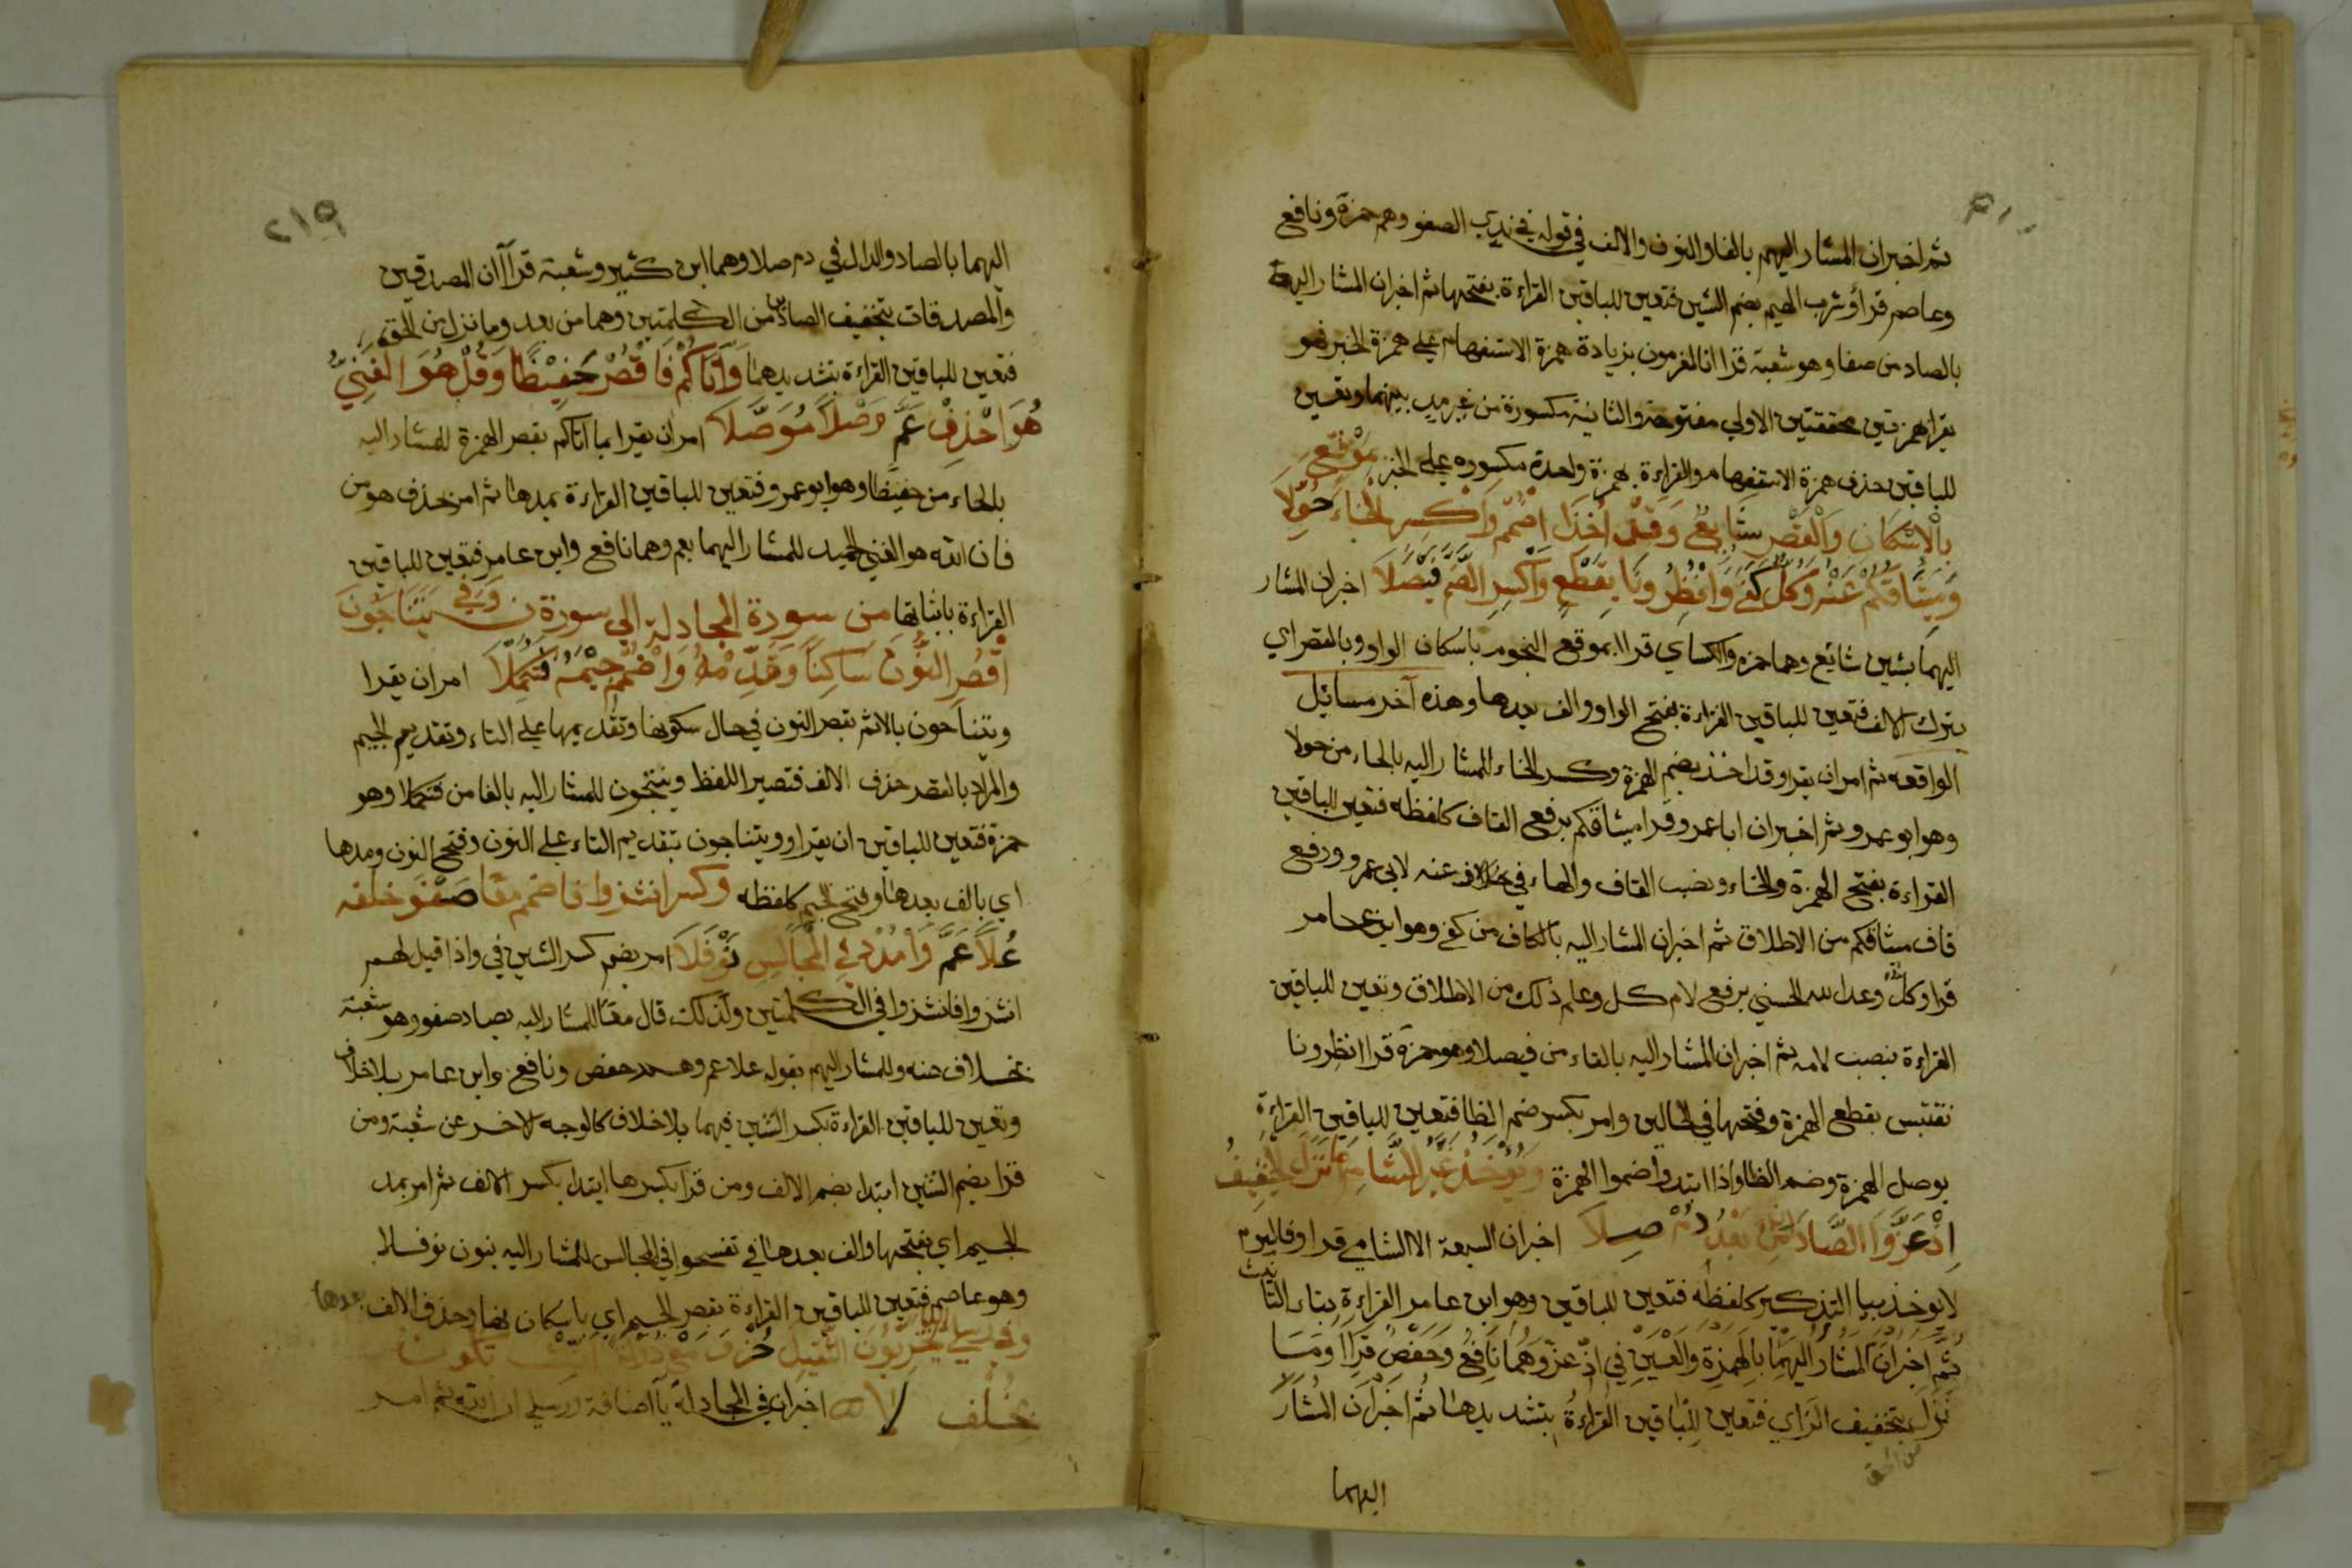 ثم اخبر ان المشار اليهم بالفا والنون والالف في قوله في ندي الصفو وهم حمزة ونافع
وعاصم قرأ وشرب الهيم بضم الشين فتعين للباقين القراءة بفتحها ثم اخبر ان المشار اليه
بالصاد من صفا وهو شعبة قرا انا لمغرمون بزيادة همزة الاستفهام علي همزة الخبر فهو
يقرا بهمزتين محققتين الاولي مفتوحة والثانية مكسورة من غير مد بينهما وتعين
للباقين حذف همزة الاستفهام والقراءة بهمزة واحدة مكسوره علي الخبر بِمَوْقِعِ
بِالْاِسْكَانِ وَالْقَصْرِ شَائِعٌ وَقَدْ اَخَذَ اضْمُمْ وَاكْسِرِ الْخَاءَ حُوَّلَا
وَمِيثَاقُكُمْ عَنْهُ وَكُلٌّ كَفَى وَانْظِرُونَا بِقَطْعٍ وَاكْسِرِ الضَّمَّ فَيْصَلَا اخبر ان المشار
اليهما بشين شائع وهما حمزه والكساي قرا ا بموقع النجوم باسكان الواو وبالقصر اي
بترك الالف فتعين للباقين القراءة بفتح الواو والف بعدها وهذه آخر مسائيل
الواقعه ثم امر ان يقرا وقد اخذ بضم الهمزة وكسر الخاء للمشار اليه بالحاء من حولا
وهو ابو عمرو ثم اخبر ان ابا عمرو قرا ميثاقكم برفع القاف كلفظه فتعين للباقين
القراءة بفتح الهمزة والخاء ونصب القاف والهاء في عنه لابي عمرو ورفع
قاف ميثاقكم من الاطلاق ثم اخبر ان المشار اليه بالكاف من كفى وهو ابن عامر
قرا وكل وعد الله الحسني برفع لام كل وعلم ذلك من الاطلاق وتعين للباقين
القراءة بنصب لامه ثم اخبر ان المشار اليه بالفاء من فيصلا وهو حمزة قرا انظرونا
نقتبس بقطع الهمزة وفتحها في الحالين وامر بكسر ضم الظا فتعين للباقين القراءة
بوصل الهمزة وضم الظا واذا ابتدوا ضموا الهمزة وَيُؤْخَذُ غَيْرُ الشَّامِ مَا نَزَلَ الْخَفِيفُ
اِذْ عَزَّ وَالصَّادَانِ مِنْ بَعْدُ دُمْ صِلَا اخبر ان السبعة الا الشامي قرا وفاليوم
لا يوخذ بيا التذكير كلفظه فتعين للباقين وهو ابن عامر القراءة بتاء التانيث
ثُمَّ اَخْبَرَ اَنَّ الْمُشَارَ اِلَيْهِمَا بِالْهَمْزَةِ وَالْعَيْنِ فِي اِذْ عَزَّ وَهُمَا نَافِعٌ وَحَفْصٌ قَرَاَ ا وَمَا
نزل بتخفيف الزاي فتعين للباقين القراءة بتشديدها ثم اخبر ان المشار
من الحق
اليهما
٢١٩
اليهما بالصاد والدال في دم صلا وهما ابن كثير وشعبة قرأ ا ان المصدقين
والمصدقات بتخفيف الصادين من الكلمتين وهما من بعد وما نزل من الحق
فتعين للباقين القراءة بتشديدهما وَآتَاكُمْ فَاقْصُرْ حَفِيْظًا وَقُلْ هُوَ الْغَنِيُّ
هُوَ احْذِفْ عَمَّ وَصْلًا مُوَصَّلَا امر ان يقرا بما آتاكم بقصر الهمزة للمشار اليه
بالحاء من حفيظا وهو ابو عمرو فتعين للباقين القراءة بمدها ثم امر بحذف هو من
فان الله هو الغني الحميد للمشار اليهما بعم وهما نافع وابن عامر فتعين للباقين
القراءة باثباتها من سورة المجادلة الي سورة ن وَفِي يَتَنَاجَوْنَ
اقْصُرِ النُّونَ سَاكِنًا وَقَدِّمْهُ وَاضْمُمْ جِيْمَهُ فَتُكَمِّلَا امر ان يقرا
ويتناجون بالاثم بقصر النون في حال سكونها وتقديمها علي التاء وتقديم الجيم
والمراد بالقصر حذف الالف فتصير اللفظ وينتجون للمشار اليه بالفا من فتكملا وهو
حمزة فتعين للباقين ان يقراو ويتناجون بتقديم التاء علي النون وفتح النون ومدها
اي بالف بعدها وفتح الجيم كلفظه وكسر انشزوا فاضمم معًا صَفْوَ خلفه
عُلًا عَمَّ وَامْدُدْ فِي الْمَجَالِسِ نَوْفَلَا امر بضم كسر الشين في واذا قيل لهم
انشزوا فانشزوا في الكلمتين ولذلك قال معًا للمشار اليه بصاد صفو وهو شعبة
بخلاف عنه وللمشار اليهم بقوله علا عم وهم حفص ونافع وابن عامر بلا خلاف
وتعين للباقين القراءة بكسر الشين فيهما بلا خلاف كالوجه الاخر عن شعبة ومن
قرا بضم الشين ابتدا بضم الالف ومن قرا بكسرها ابتدا بكسر الالف ثم امر بمد
الجيم اي بفتحها والف بعدها في تفسحوا في المجالس للمشار اليه بنون نوفلا
وهو عاصم فتعين للباقين القراءة بقصر الجيم اي باسكانها وحذف الالف بعدها
وفي رسلي اليا يُخْرِبُونَ الثَّقِيلَ حُزْ
بخُلْفِ لا اخبر ان في المجادلة يآ اضافة ورسلي ان الله ثم امر